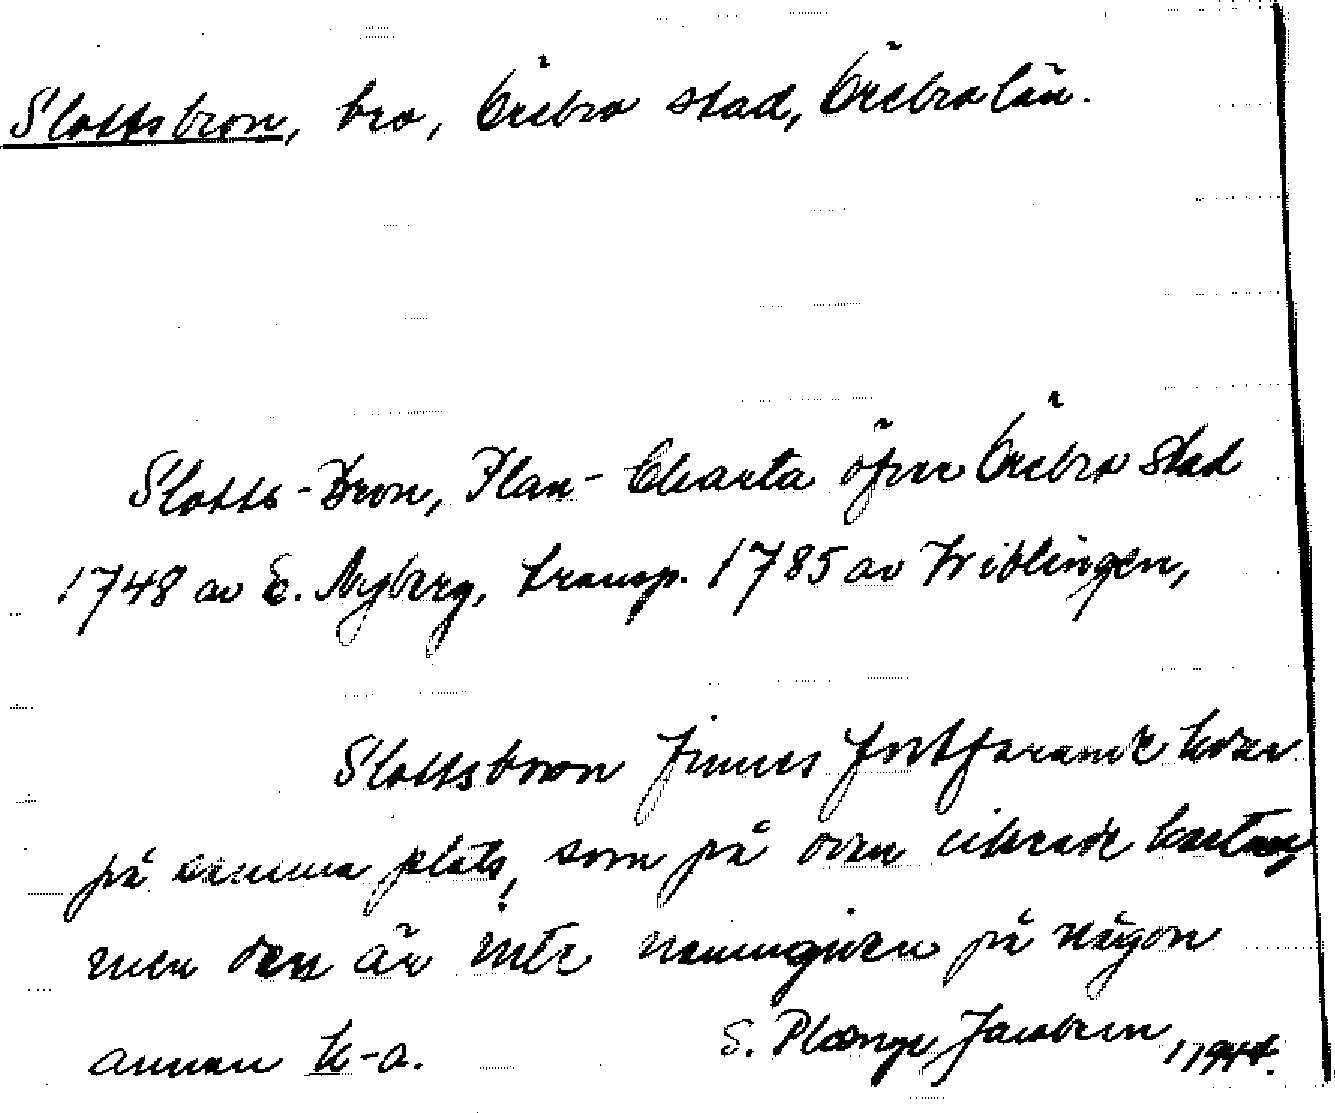 Slottsbron, bro, Örebro stad, Örebro län.
Slotts-Bron, Plan-Charta öfver Örebro stad
1748 av E. Nyberg, transp. 1785 av Wiblingen,
Slottsbron finnes fortfarande kvar
på samma plats, som på ovan citerade kartan,
men den är inte namngiven på någon
annan k-a. S. Plænge Jacobsen